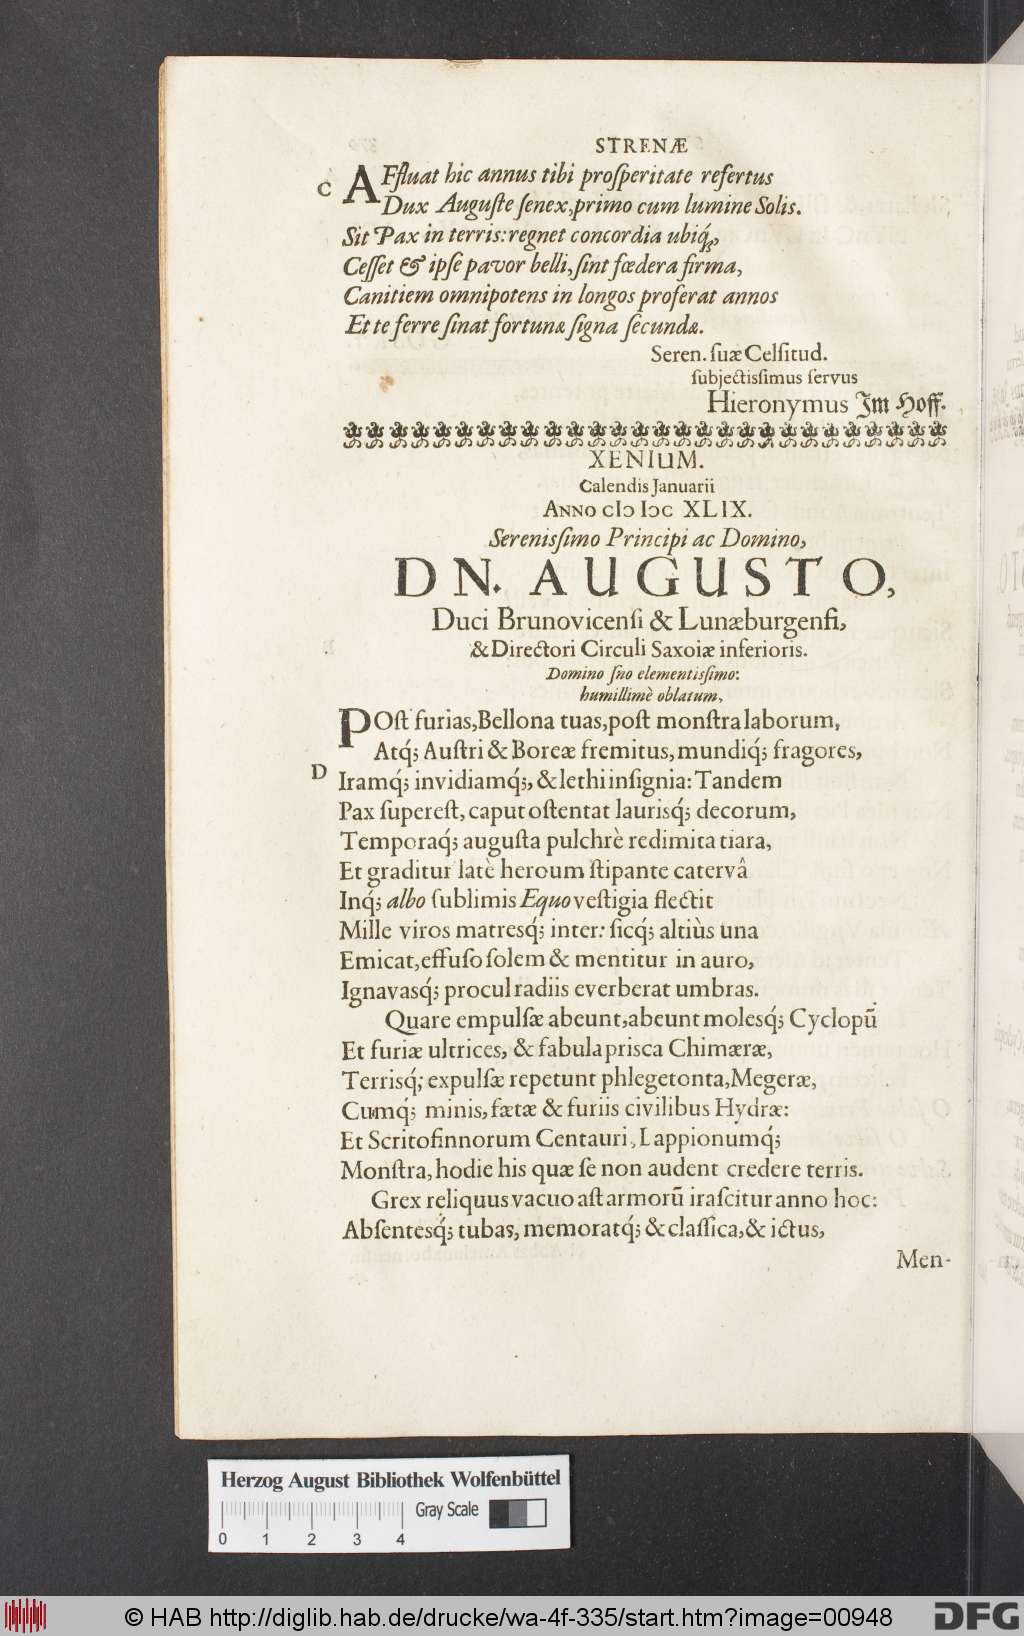 STRENÆ
C AFfluat hic annus tibi proſperitate refertus
Dux Auguſte ſenex, primo cum lumine Solis.
Sit Pax in terris: regnet concordia ubiq́ꝫ,
Ceſſet & ipſe pavor belli, ſint fœdera firma,
Canitiem omnipotens in longos proferat annos
Et te ferre ſinat fortunæ ſigna ſecundæ.
Seren. ſuæ Celſitud.
ſubjectiſsimus ſervus
Hieronymus Im Hoff.
XENIUM.
Calendis Januarii
ANNO cIɔ Iɔc XLIX.
Sereniſſimo Principi ac Domino,
DN. AUGUSTO,
Duci Brunovicenſi & Lunæburgenſi,
& Directori Circuli Saxoiæ inferioris.
Domino ſno elementiſſimo:
humillimè oblatum,
POſt furias, Bellona tuas, poſt monſtra laborum,
Atq́; Auſtri & Boreæ fremitus, mundiq́; fragores,
D Iramq́; invidiamq́;, & lethi inſignia: Tandem
Pax ſupereſt, caput oſtentat laurisq́; decorum,
Temporaq́; auguſta pulchrè redimita tiara,
Et graditur latè heroum ſtipante catervâ
Inq́; albo ſublimis Equo veſtigia flectit
Mille viros matresq́; inter: ſicq́; altiùs una
Emicat, effuſo ſolem & mentitur in auro,
Ignavasq́; procul radiis everberat umbras.
Quare empulſæ abeunt, abeunt molesq́; Cyclopũ
Et furiæ ultrices, & fabula priſca Chimæræ,
Terrisq́; expulſæ repetunt phlegetonta, Megeræ,
Cumq́; minis, fætæ & furiis civilibus Hydræ:
Et Scritofinnorum Centauri, Lappionumq́;
Monſtra, hodie his quæ ſe non audent credere terris.
Grex reliquus vacuo aſt armorũ iraſcitur anno hoc:
Abſentesq́; tubas, memoratq́; & claſſica, & ictus,
Men-
Herzog August Bibliothek Wolfenbüttel
Gray Scale
0 1 2 3 4
© HAB http://diglib.hab.de/drucke/wa-4f-335/start.htm?image=00948
DFG